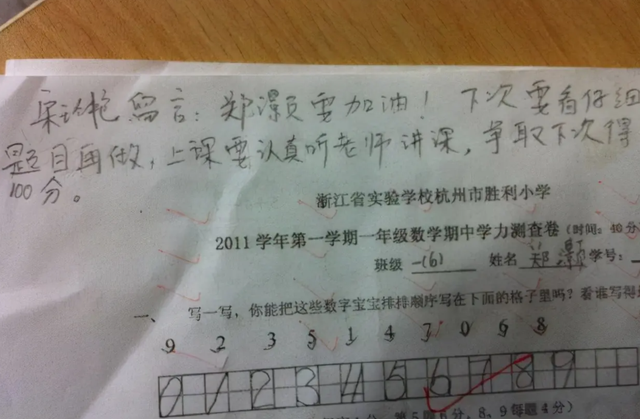 留言：郑灏要加油！下次要看仔细
题目再做，上课要认真听老师讲课，争取下次得
100分。
浙江省实验学校杭州市胜利小学
2011学年第一学期一年级数学期中学力测查卷（时间：40分
班级 一(6) 姓名 郑灏 学号：
一、 写一写，你能把这些数字宝宝排排顺序写在下面的格子里吗？看谁写得
9 2 3 5 1 4 7 0 6 8
0 1 2 3 4 5 6 7 8 9
分，第5题6分，8、9每题4分）